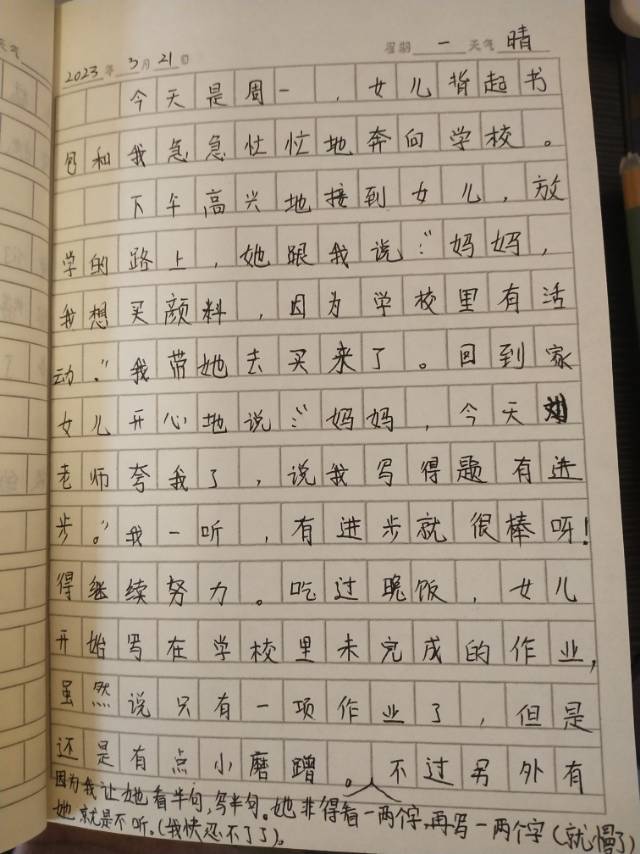 2023年3月21日 星期 一 天气 晴
今天是周一，女儿背起书
包和我急急忙忙地奔向学校。
下午高兴地接到女儿，放
学的路上，她跟我说：“妈妈，
我想买颜料，因为学校里有活
动。”我带她去买来了。回到家
女儿开心地说：“妈妈，今天刘
老师夸我了，说我写得题有进
步。”我一听，有进步就很棒呀！
得继续努力。吃过晚饭，女儿
开始写在学校里未完成的作业，
虽然说只有一项作业了，但是
还是有点小磨蹭。不过另外有
因为我让她看半句，写半句。她非得看一两个字，再写一两个字（就慢了）
她就是不听。（我快忍不了了）。